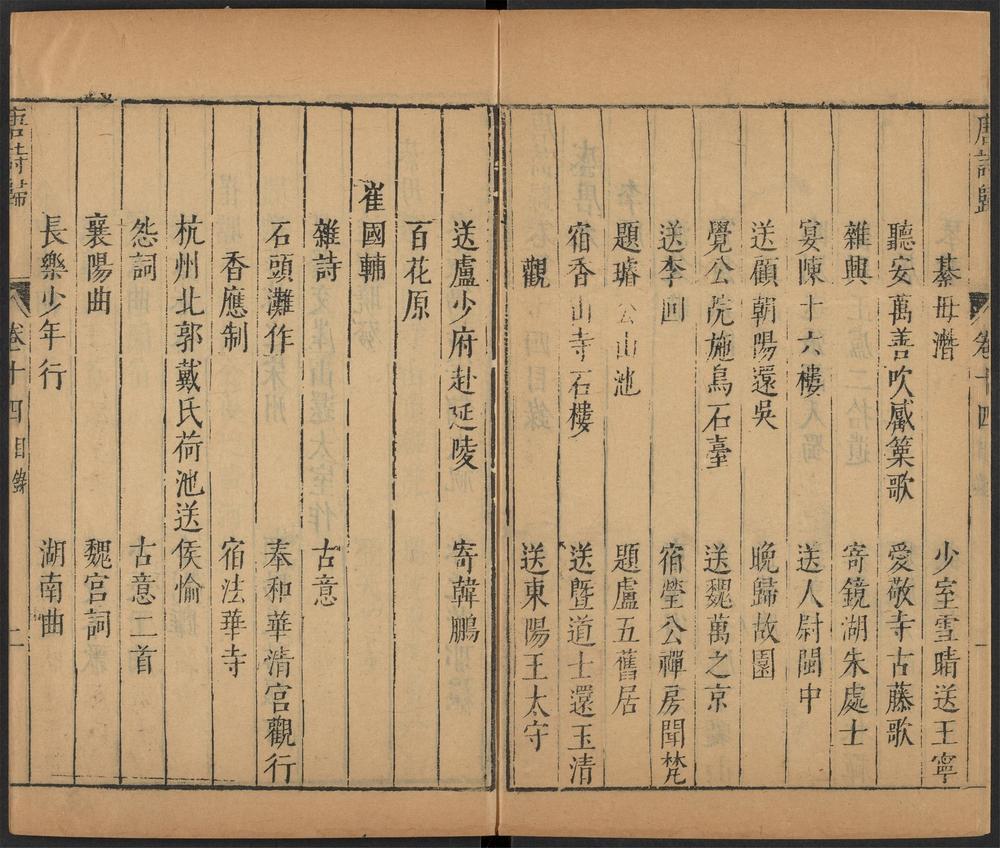 唐詩歸 卷十四
綦毋潛 少室雪晴送王寧
聽安萬善吹觱篥歌 愛敬寺古藤歌
雜興 寄鏡湖朱處士
宴陳十六樓 送人尉閩中
送顧朝陽還吳 晚歸故園
覺公院施鳥石臺 送魏萬之京
送李回 宿瑩公禪房聞梵
題璿公山池 題盧五舊居
宿香山寺石樓 送暨道士還玉清
觀 送東陽王太守
送盧少府赴延陵 寄韓鵬
百花原
崔國輔
雜詩 古意
石頭灘作 奉和華清宮觀行
香應制 宿法華寺
杭州北郭戴氏荷池送侯愉
怨詞 古意二首
襄陽曲 魏宮詞
長樂少年行 湖南曲
唐詩歸 卷十四目錄 二